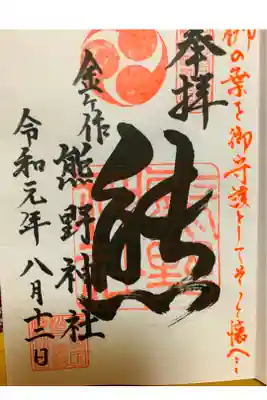 梛の葉を御守護としてそっと懐へ…
奉拝
熊
金ヶ作
熊野神社
令和元年八月十二日